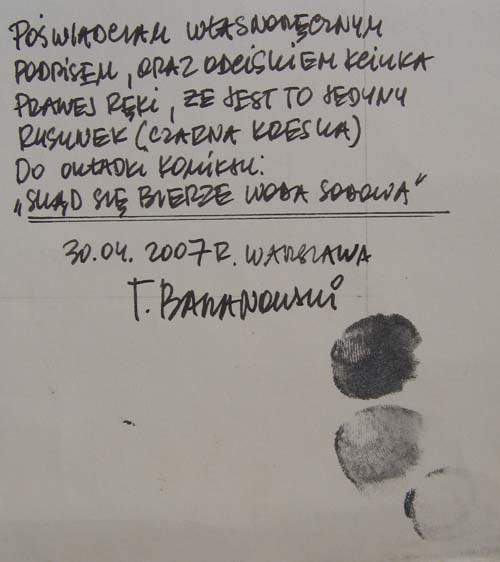 POŚWIADCZAM WŁASNORĘCZNYM
PODPISEM, ORAZ ODCISKIEM KCIUKA
PRAWEJ RĘKI, ŻE JEST TO JEDYNY
RYSUNEK (CZARNA KRESKA)
DO OKŁADKI KOMIKSU:
„SKĄD SIĘ BIERZE WODA SODOWA"
30.04. 2007 R. WARSZAWA
T. BARANOWSKI